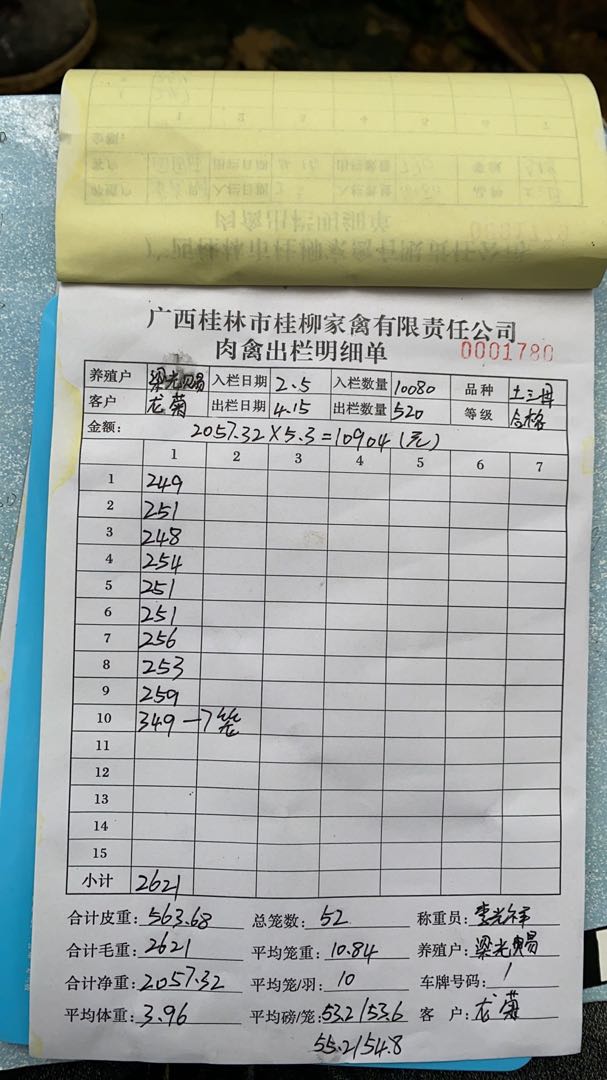 广西桂林市桂柳家禽有限责任公司
肉禽出栏明细单 0001780
养殖户 梁光赐 入栏日期 2.5 入栏数量 10080 品种 土二母
客户 龙菊 出栏日期 4.15 出栏数量 520 等级 合格
金额: 2057.32×5.3=10904(元)
1 2 3 4 5 6 7
1 249
2 251
3 248
4 254
5 251
6 251
7 256
8 253
9 259
10 349-7笼
11
12
13
14
15
小计 2621
合计皮重: 563.68 总笼数: 52 称重员: 李光祥
合计毛重: 2621 平均笼重: 10.84 养殖户: 梁光赐
合计净重: 2057.32 平均笼/羽: 10 车牌号码: 1
平均体重: 3.96 平均磅/笼: 53.2/53.6 客 户: 龙菊
55.2/54.8